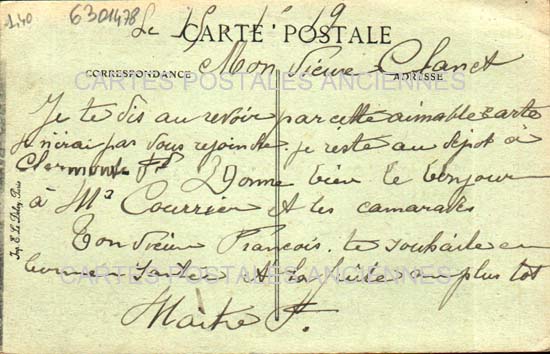 -1,40
6301478
Le 15 1 19
CARTE POSTALE
Mon Vieux Clanet
CORRESPONDANCE
ADRESSE
CARTES POSTALES ANCIENNES
Je te dis au revoir par cette aimable carte
je n'irai pas vous rejoindre je reste au dépot à
Clermont Fd Donne bien le bonjour
à Mr Courrier et les camarades
Ton Vieux François. te souhaite en
bonne santé et la fuite au plus tot
CARTES POSTALES ANCIENNES
Maitre F.
Imp. E. Le Deley, Paris